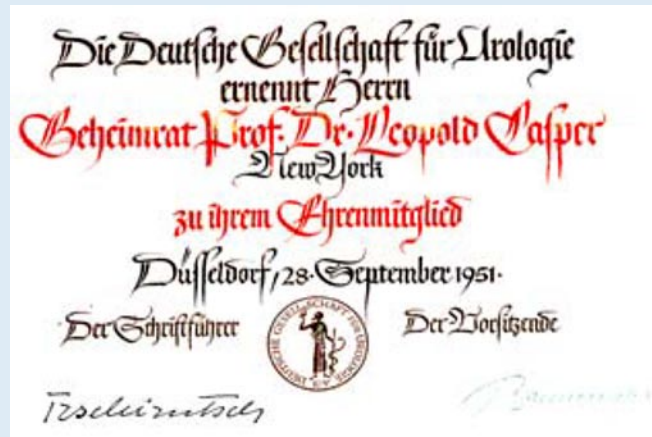 Die Deutsche Gesellschaft für Urologie
ernennt Herrn
Geheimrat Prof. Dr. Leopold Casper
New York
zu ihrem Ehrenmitglied
Düsseldorf, 28. September 1951.
Der Schriftführer
Der Vorsitzende
DEUTSCHE GESELLSCHAFT FÜR UROLOGIE